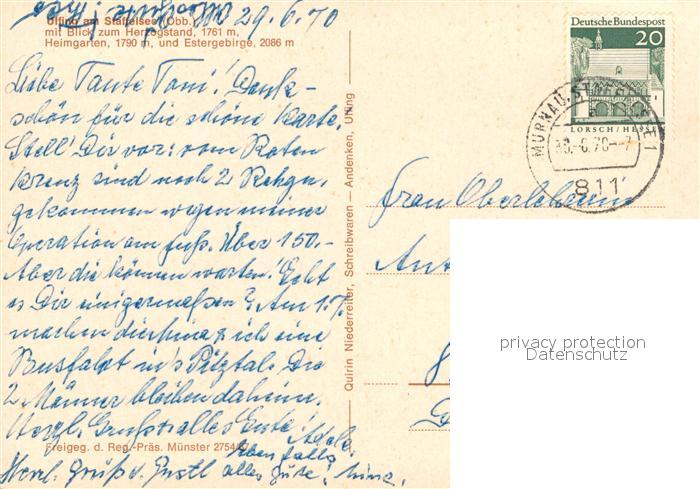 29.6.70
Uffing am Staffelsee (Obb.)
mit Blick zum Herzogstand, 1761 m,
Heimgarten, 1790 m, und Estergebirge, 2086 m
Liebe Tante Toni! Dank-
schön für die schöne Karte.
Stell' Dir vor: vom Roten
Kreuz sind noch 2 Rchgn.
gekommen wegen meiner
Operation am Fuß. Über 150.-
Aber die können warten! Geht
es Dir einigermaßen? Am 1.7.
machen die Mina & ich eine
Busfahrt in's Pitztal. Die
2 Männer bleiben daheim.
Herzl. Gruß & alles Gute! Adele.
Freigeg. d. Reg.-Präs. Münster
Herzl. Gruß v. Gustl
ebenfalls
alles Gute! Mina.
Quirin Niederreiter, Schreibwaren — Andenken, Uffing
Deutsche Bundespost
20
LORSCH/HESSEN
MURNAU, STAFFELSEE 1
811
Frau Oberlehrerin
privacy protection
Datenschutz